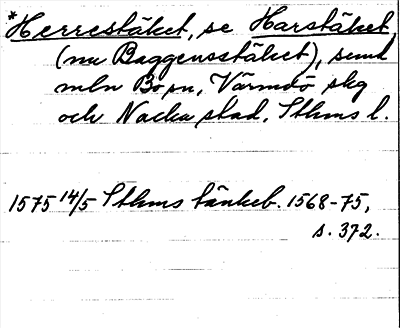 *Herrestäket, se Harstäket
(nu Baggensstäket), sund
mln Bo sn, Värmdö skg
och Nacka stad, Sthms l.
1575 14/5 Sthms tänkeb. 1568-75,
s. 372.